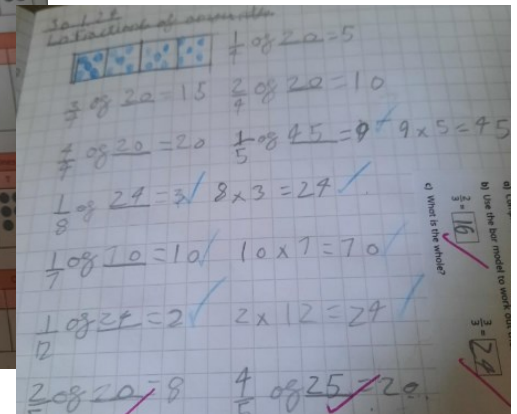 1/4 of 20 = 5
3/4 of 20 = 15 2/4 of 20 = 10
4/4 of 20 = 20 1/5 of 45 = 9 9 x 5 = 45
1/8 of 24 = 3 8 x 3 = 24
1/7 of 70 = 10 10 x 7 = 70
1/12 of 24 = 2 2 x 12 = 24
2/5 of 20 = 8 4/5 of 25 = 20
b) Use the bar model to work out
2/3 = 16
3/3 = 24
c) What is the whole?